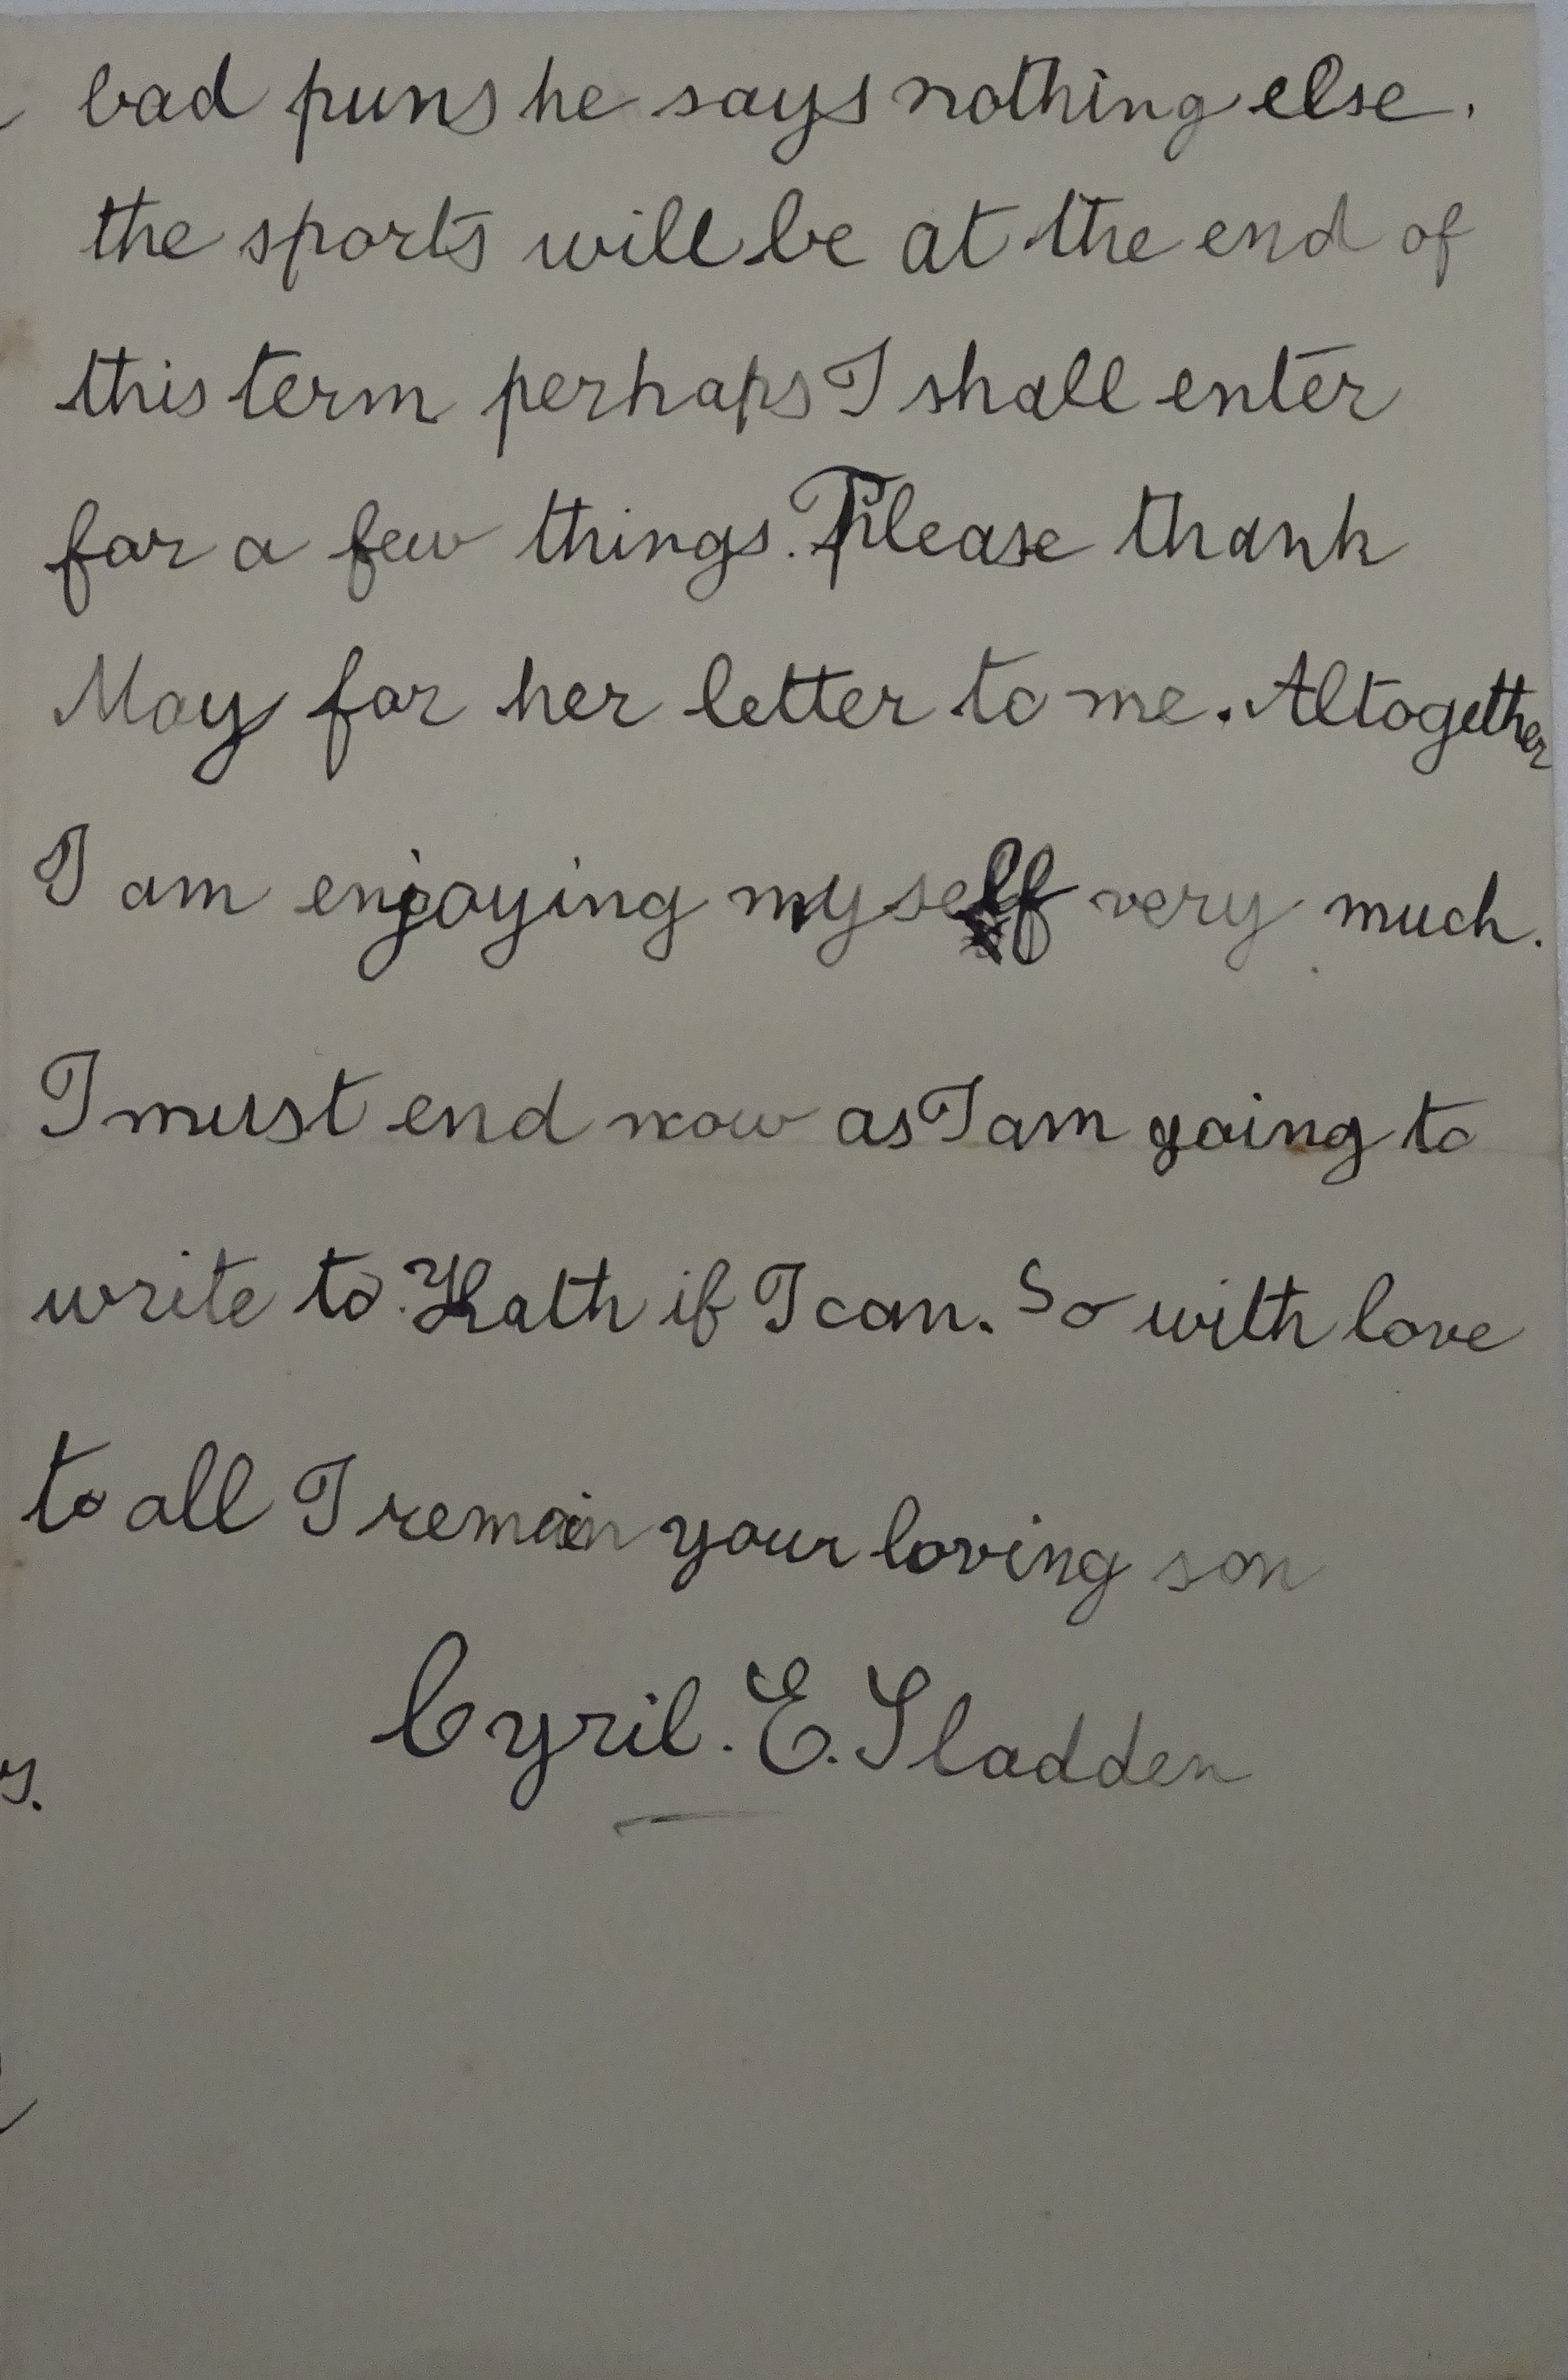 bad puns he says nothing else.
the sports will be at the end of
this term perhaps I shall enter
for a few things. Please thank
May for her letter to me. Altogether
I am enjoying myself very much.
I must end now as I am going to
write to Kath if I can. So with love
to all I remain your loving son
Cyril. E. Sladden